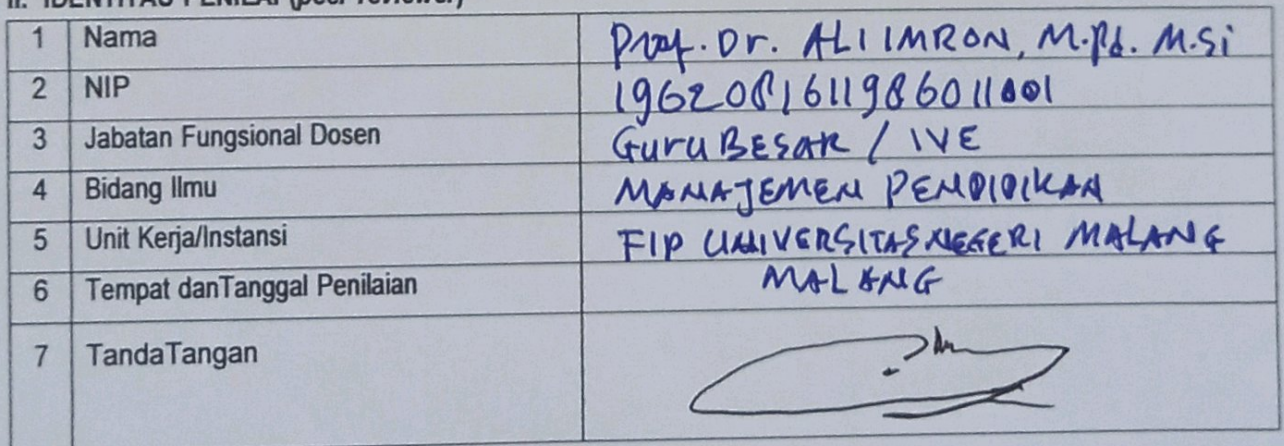 II. IDENTITAS PENILAI (peer reviewer)
1 Nama Prof. Dr. ALI IMRON, M.Pd. M.Si
2 NIP
3 Jabatan Fungsional Dosen Guru BESAR / IVE
4 Bidang Ilmu MANAJEMEN PENDIDIKAN
5 Unit Kerja/Instansi FIP UNIVERSITAS NEGERI MALANG
6 Tempat danTanggal Penilaian MALANG
7 TandaTangan